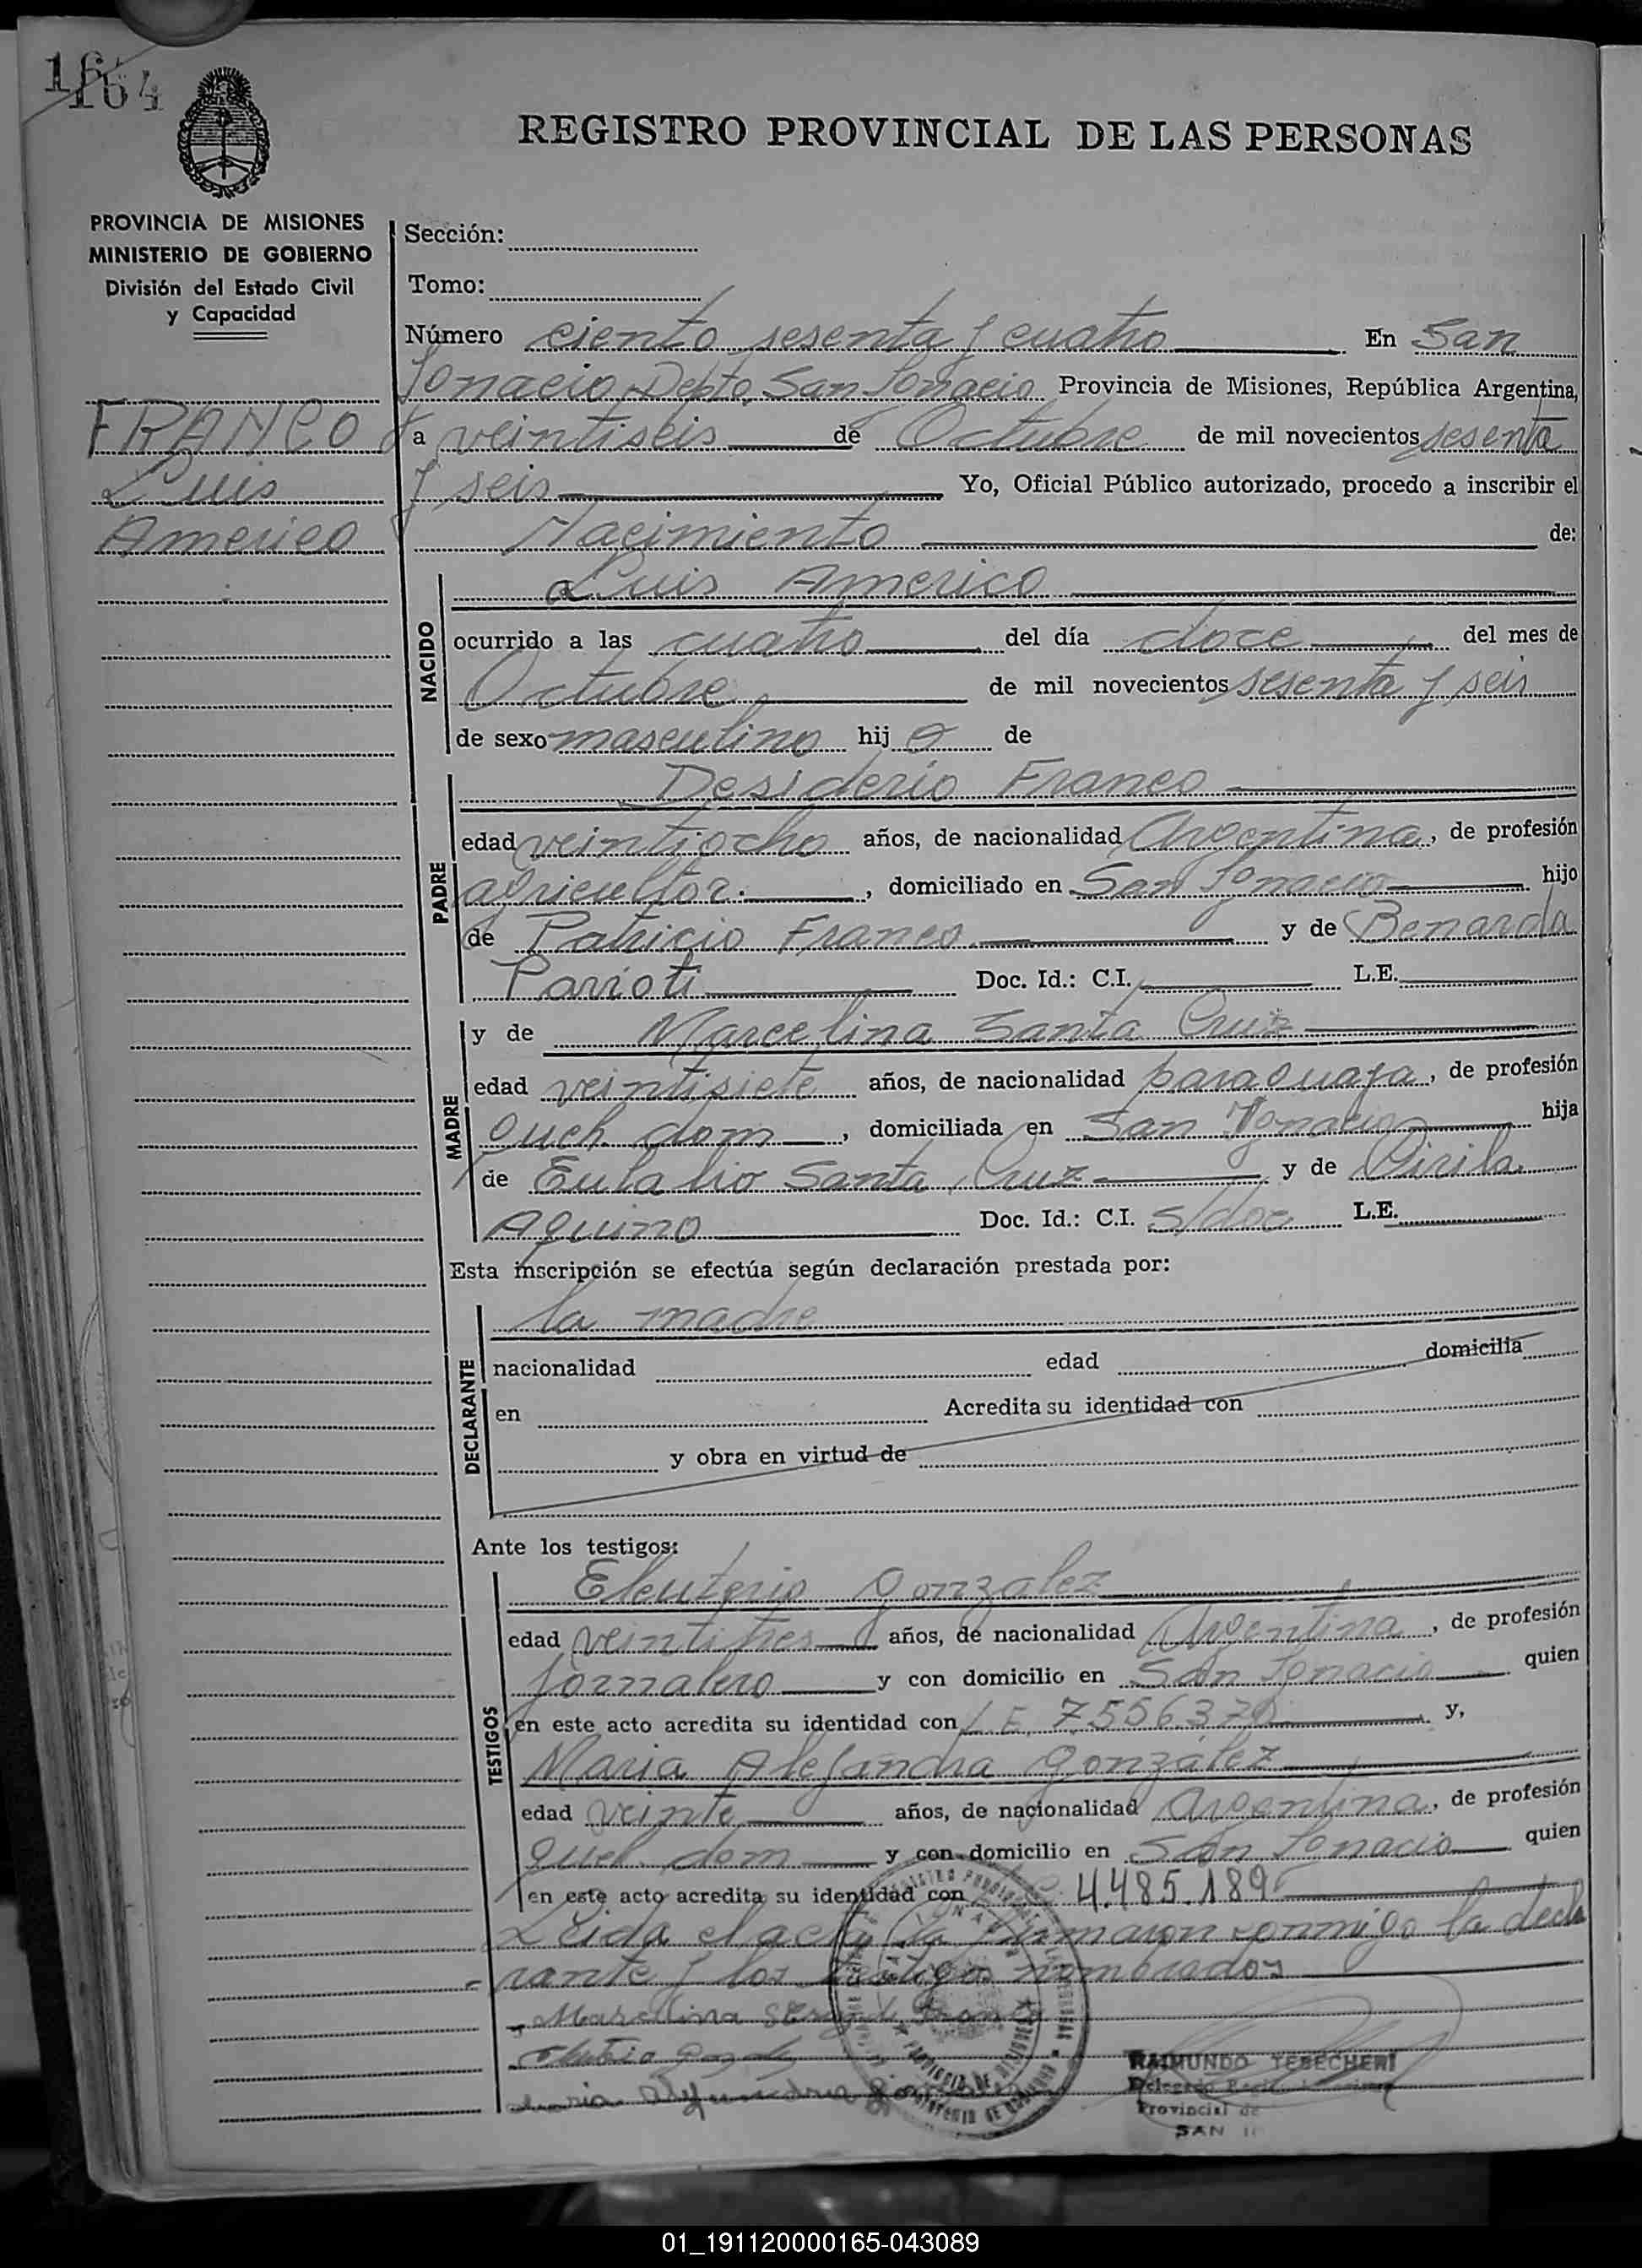 164
REGISTRO PROVINCIAL DE LAS PERSONAS
PROVINCIA DE MISIONES
MINISTERIO DE GOBIERNO
División del Estado Civil
y Capacidad
FRANCO
Luis
Americo
Sección:
Tomo:
Número ciento sesenta y cuatro En San
Ignacio, Depto. San Ignacio Provincia de Misiones, República Argentina,
a veintiseis de Octubre de mil novecientos sesenta
y seis Yo, Oficial Público autorizado, procedo a inscribir el
Nacimiento de:
NACIDO
Luis Americo
ocurrido a las cuatro del día doce del mes de
Octubre de mil novecientos sesenta y seis
de sexo masculino hij o de
PADRE
Desiderio Franco
edad veintiocho años, de nacionalidad Argentina, de profesión
agricultor. , domiciliado en San Ignacio hijo
de Patricio Franco y de Benarda
Parioti Doc. Id.: C.I. L.E.
MADRE
y de Marcelina Santa Cruz
edad veintisiete años, de nacionalidad paraguaya, de profesión
Queh. dom , domiciliada en San Ignacio hija
de Eulalio Santa Cruz y de Cirila
Aquino Doc. Id.: C.I. s/doc L.E.
Esta inscripción se efectúa según declaración prestada por:
DECLARANTE
la madre
nacionalidad edad domicilia
en Acredita su identidad con
y obra en virtud de
Ante los testigos:
TESTIGOS
Eleuterio Gonzalez
edad veintitres años, de nacionalidad Argentina, de profesión
Jornalero y con domicilio en San Ignacio quien
en este acto acredita su identidad con L.E. y,
Maria Alejandra González
edad veinte años, de nacionalidad Argentina, de profesión
Queh. dom y con domicilio en San Ignacio quien
en este acto acredita su identidad con 4.485.189
Leida el acta la firmaron conmigo la decla
rante y los testigos nombrados
Marcelina
Maria
RAIMUNDO TEBECHERI
Provincial de
SAN
01_191120000165-043089